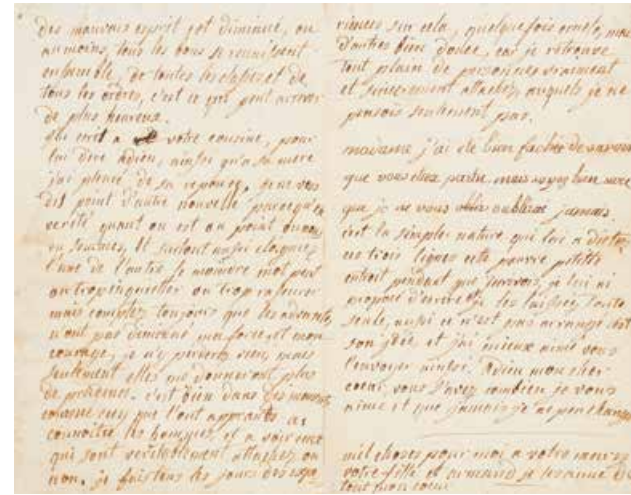 des mauvais esprit soit diminué, ou
au moins, tous les bons se reunissent
ensemble, de toutes les classes et de
tous les ordres, c'est ce qui peut arriver
de plus heureux.
J'ai ecrit a votre cousine, pour
lui dire adieu, ainsi qu'a sa mere
j'ai pleuré de sa reponce, je ne vous
dit point d'autre nouvelle parcequ'en
verité quant on est au point ou nous
en sommes, et surtout aussi eloignée
l'une de l'autre le moindre mot peut
ou trop inquietter ou trop rassurer
mais comptez toujours que les adversités
n'ont pas diminué ma force et mon
courage, je n'y perderés rien, mais
seulement elles me donneront plus
de prudence. c'est bien dans des moments
comme ceux que l'ont apprants a
connoître les hommes, et a voir ceux
qui sont veritablement attachez ou
non. je fais tous les jours des expe
riences sur cela, quelquefois cruels, mais
d'autres bien douce, car je retrouve
tout plain de personnes vraiment
et sincerement attachez, auquels je ne
pensois seulement pas.
madame j'ai été bien fachée de savoir
que vous étiez partie. mais soyez bien sure
que je ne vous oublirai jamais.
c'est la simple nature qui lui a dicter
ces trois lignes cette pauvre petitte
entroit pendant que j'ecrivois, je lui ai
proposé d'ecrire et les laissez toute
seule, aussi ce n'est pas arrangé c'est
son idée et j'ai mieux aimé vous
l'envoyer ainsi. Adieu mon cher
coeur, vous savez combien je vous
aime et que jamais je ne peu changer
mil choses pour moi a votre
votre fille et armand je les aime de
tout mon coeur